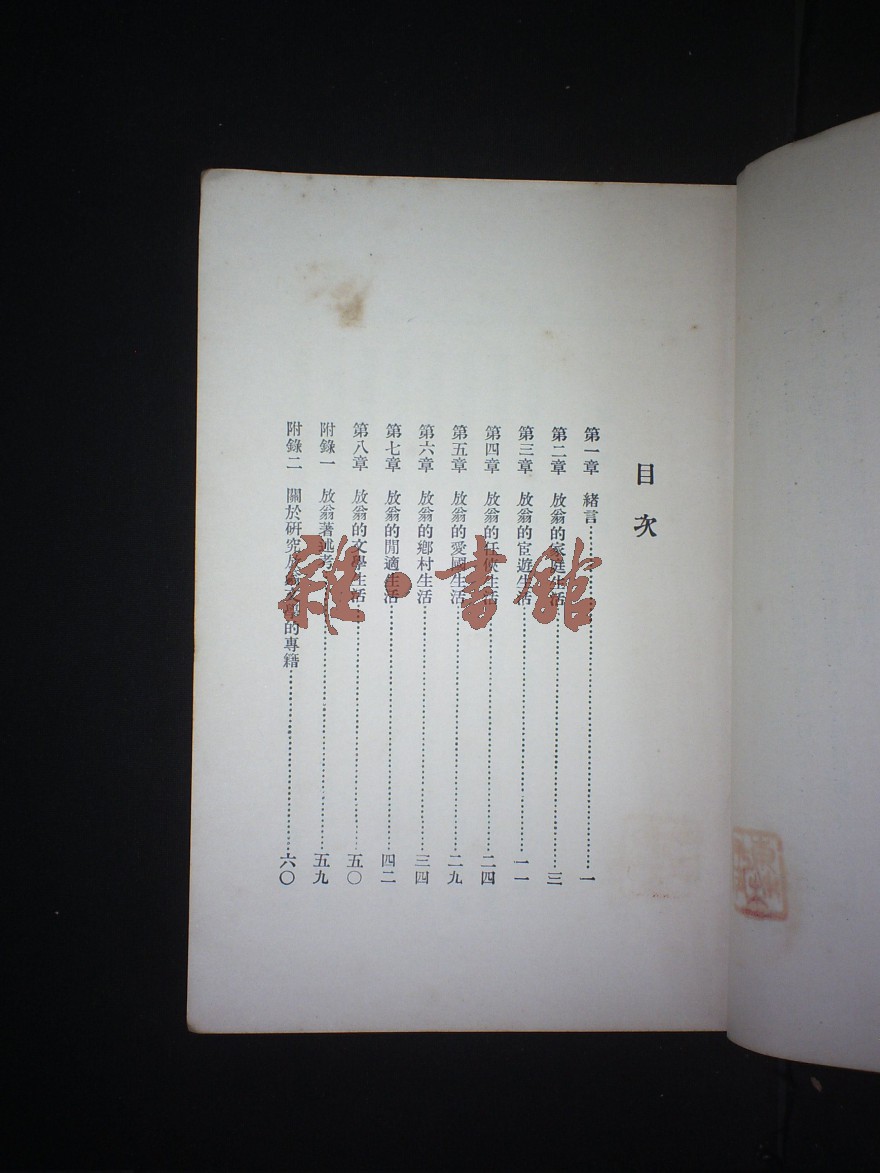 目次
第一章 緒言…………一
第二章 放翁的家庭生活…………三
第三章 放翁的宦遊生活…………一一
第四章 放翁的任俠生活…………二四
第五章 放翁的愛國生活…………二九
第六章 放翁的鄉村生活…………三四
第七章 放翁的閒適生活…………四二
第八章 放翁的文學生活…………五〇
附錄一 放翁著述考…………五九
附錄二 關於研究放翁文學的專籍…………六〇
雜·書館